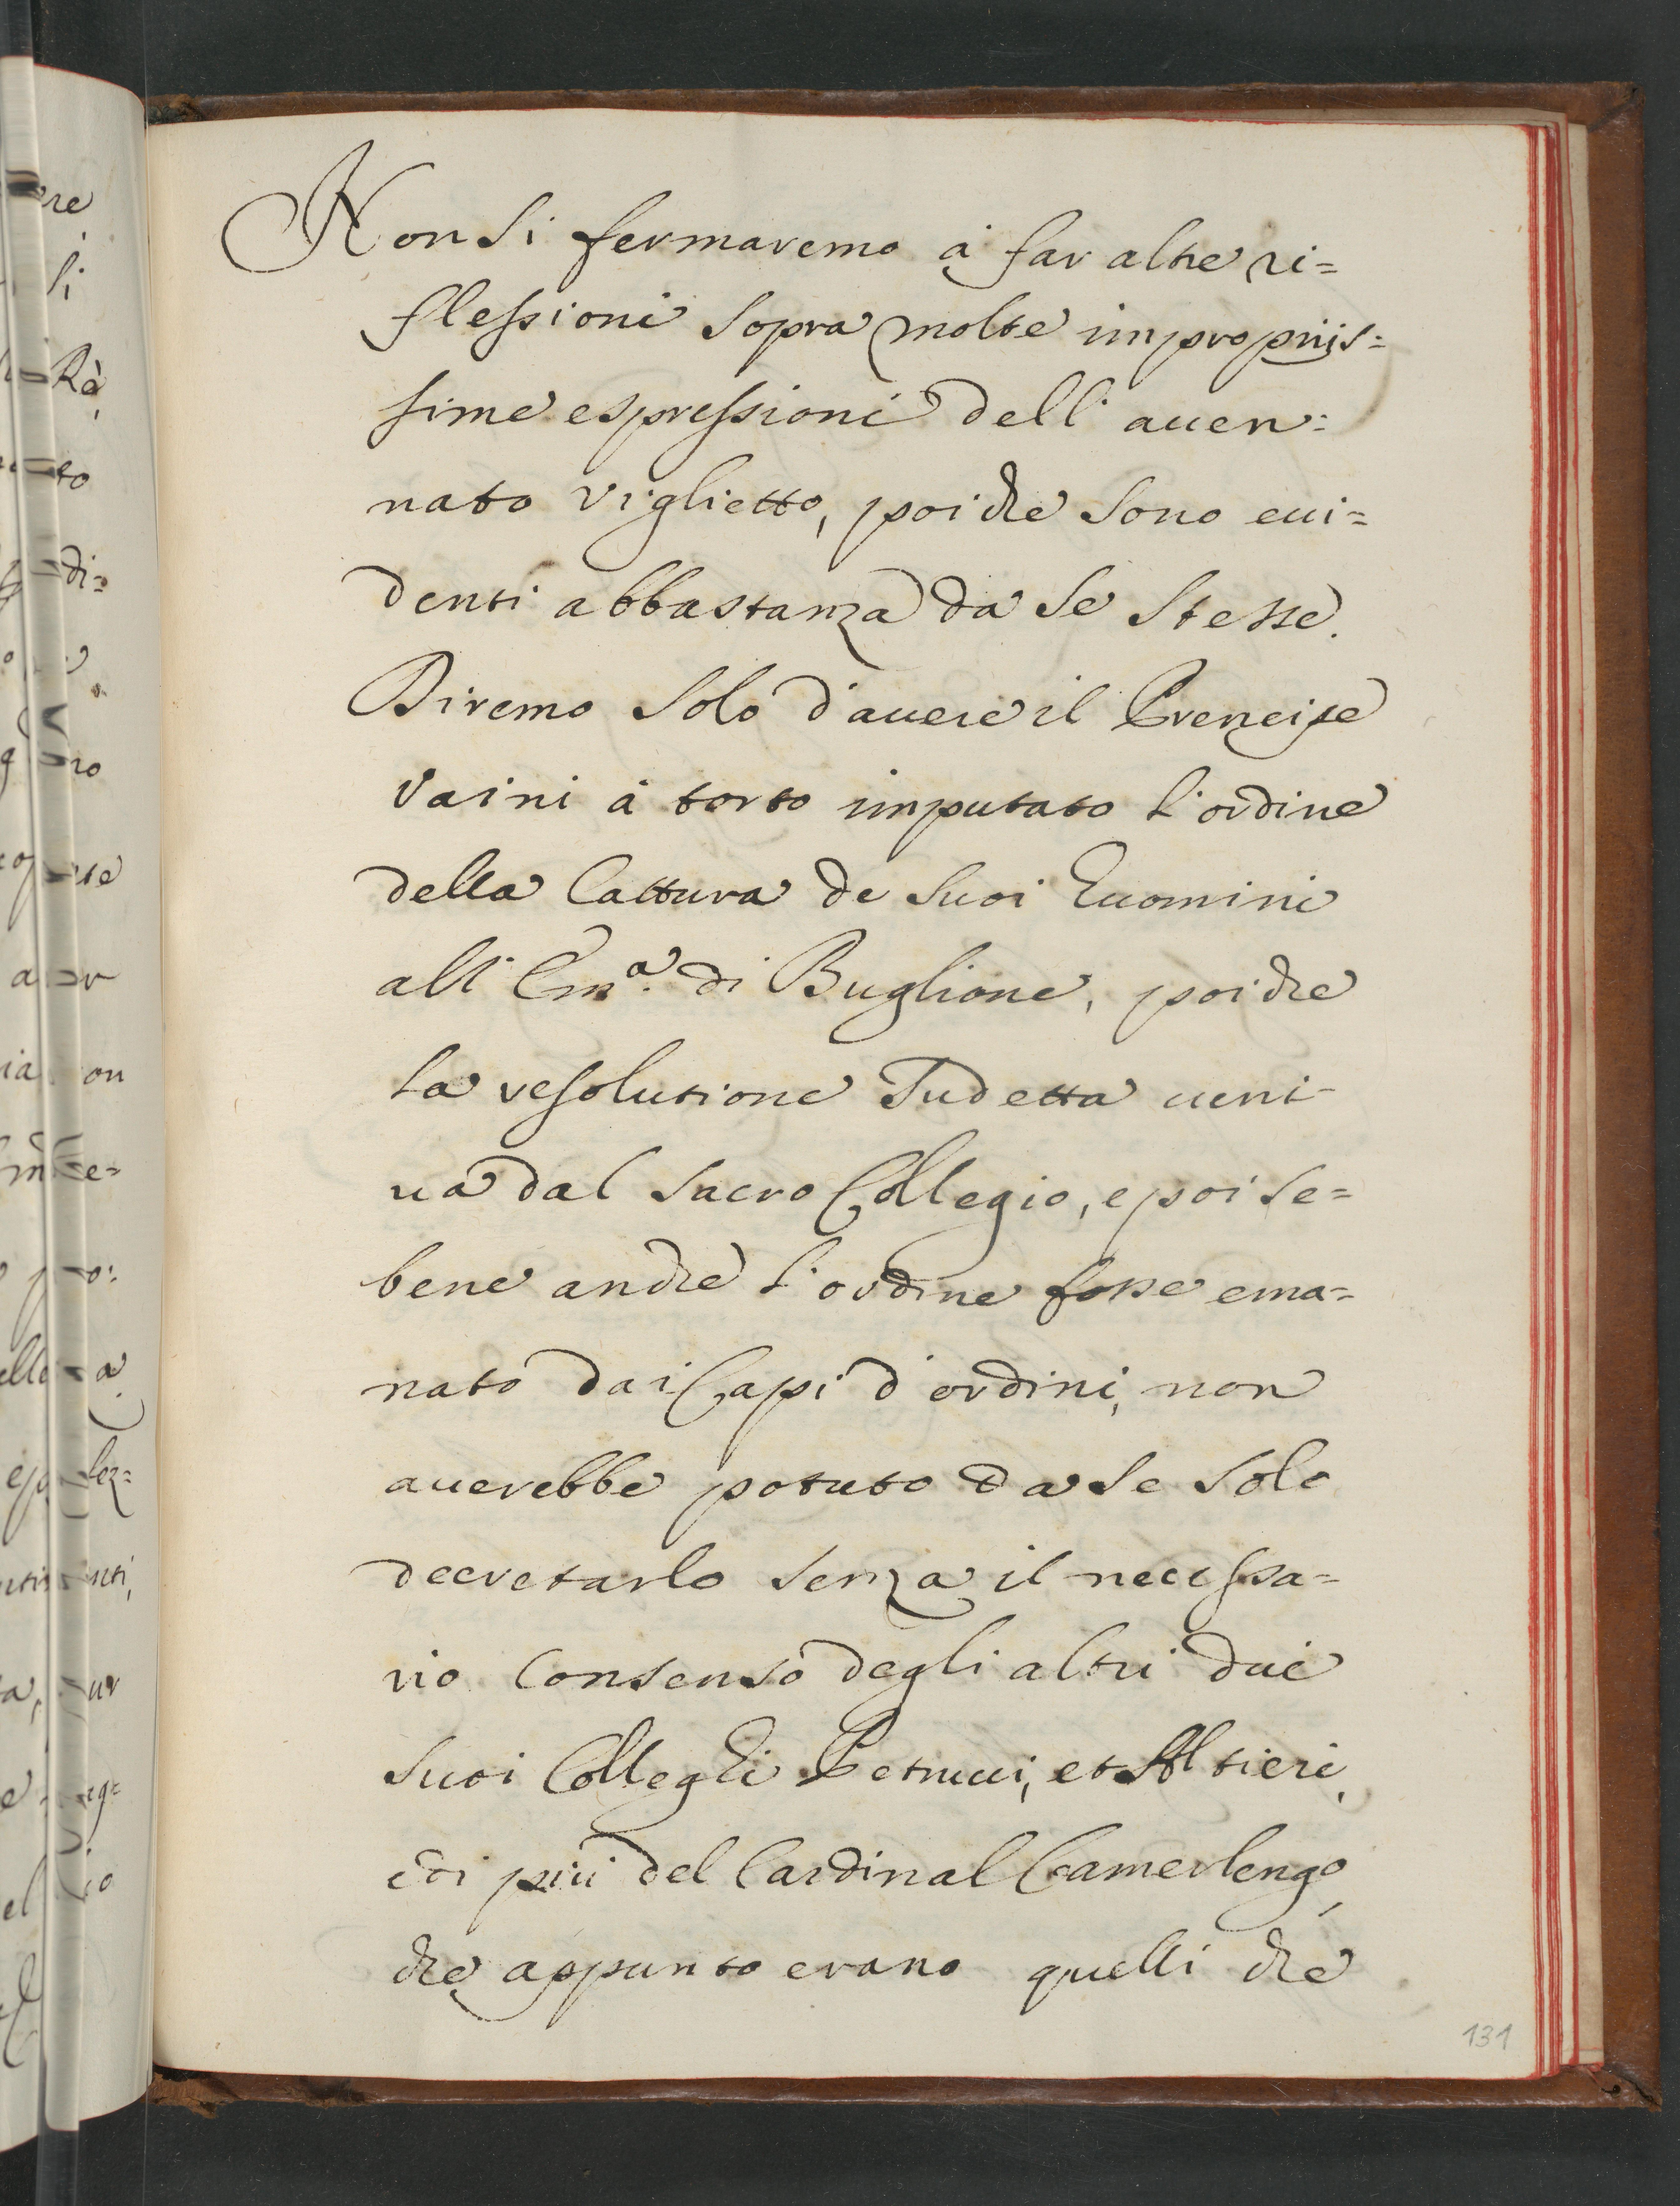 Non si fermaremo à far altre ri=
flessioni sopra molte impropriis=
sime espressioni dell' aven=
nato viglietto, poiche sono evi=
denti abbastanza da se stesse.
Diremo solo d'avere il Prencipe
Vaini à torto imputato l'ordine
della Cattura de suoi huomini
all' Em.ª di Buglione, poiche
la resolutione sudetta veni=
va dal Sacro Collegio, e poi se=
bene anche l'ordine fosse ema=
nato dai Capi d'ordini, non
averebbe potuto da se solo
decretarlo senza il necessa=
rio consenso degli altri due
suoi Colleghi Petrucci, et Altieri,
e di più del Cardinal Camerlengo,
che appunto erano quelli che
131